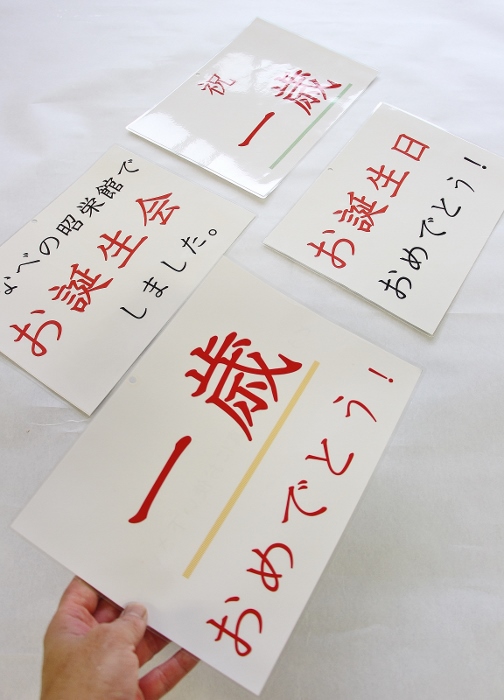 祝
一歳
お誕生日
おめでとう！
べの昭栄館で
お誕生会
しました。
一歳
おめでとう！